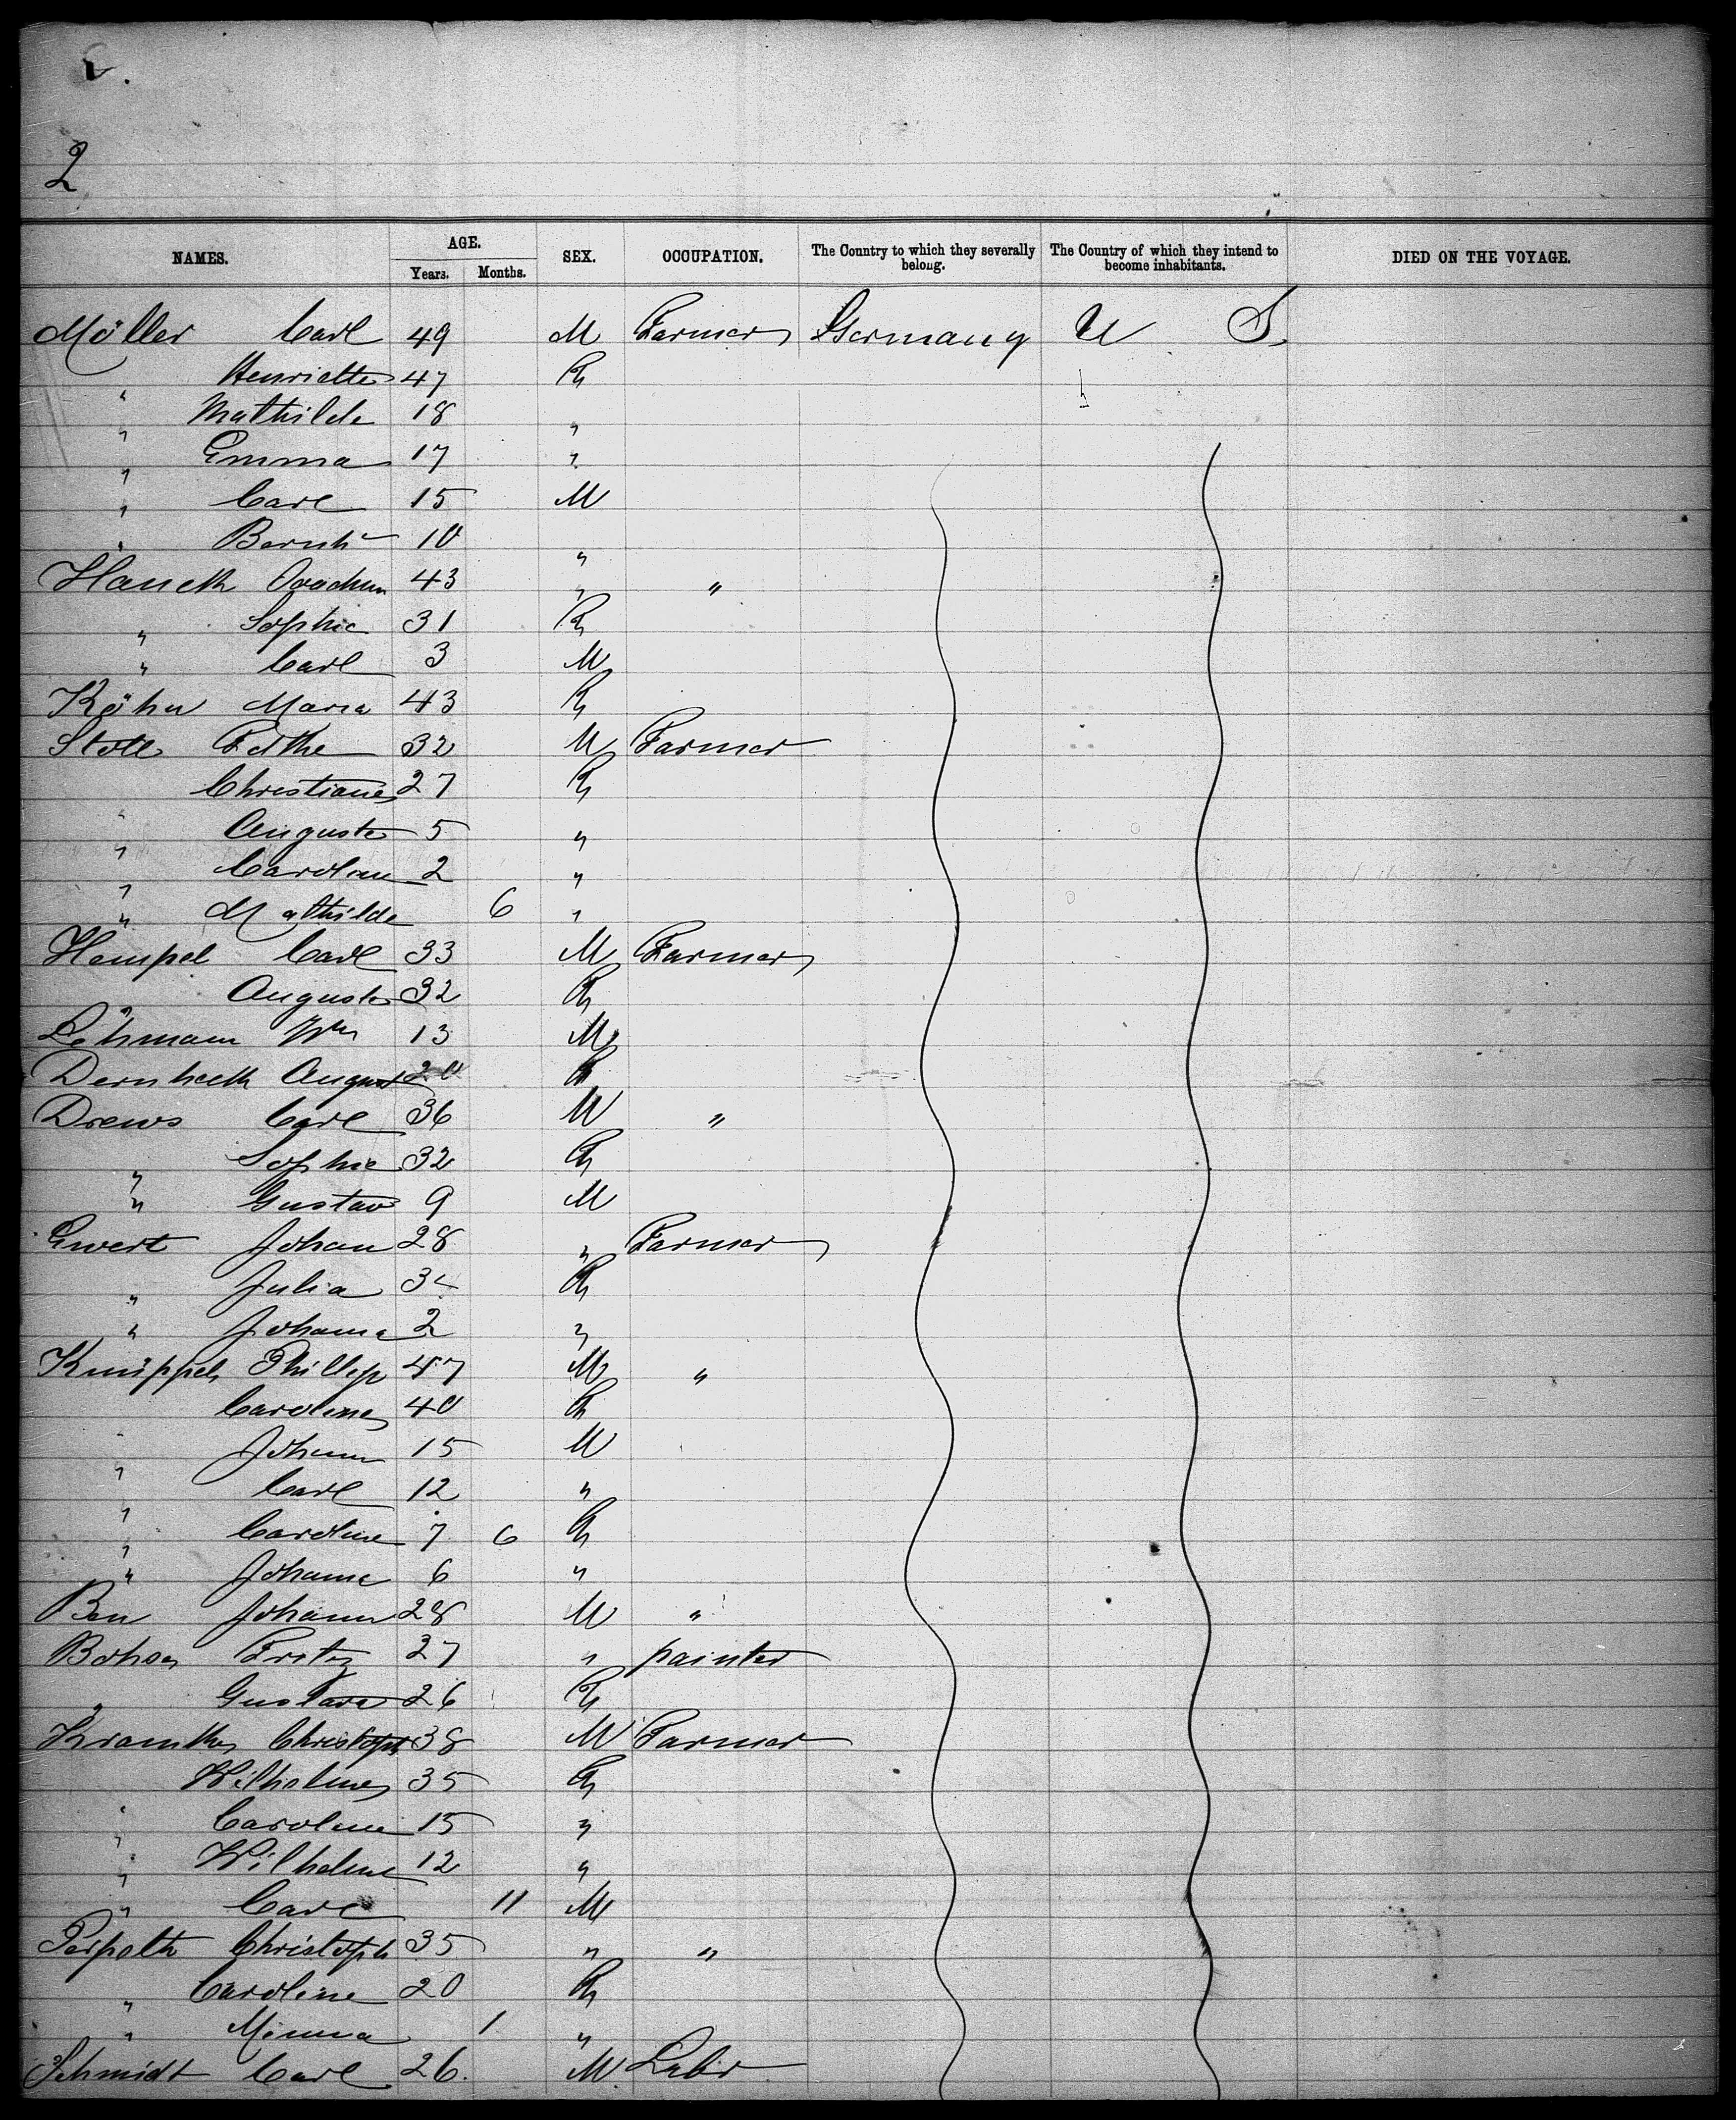 2
NAMES. AGE. SEX. OCCUPATION. The Country to which they severally belong. The Country of which they intend to become inhabitants. DIED ON THE VOYAGE.
Years. Months.
Möller Carl 49 M Farmer Germany U S
" Henriette 47 F
" Mathilde 18 "
" Emma 17 "
" Carl 15 M
" Bernh 10 "
Joachim 43 " "
" Sophie 31 F
" Carl 3 M
Köhn Maria 43 F
Stoll 32 M Farmer
" Christiane 27 F
" Auguste 5 "
" Carolin 2 "
" Mathilde 6 "
Hempel Carl 33 M Farmer
" Auguste 32 F
Löhmann Wm 13 M
August 20
Drews Carl 36 M "
" Sophie 32 F
" Gustav 9 M
Ewert Johan 28 " Farmer
" Julia 34 F
" Johanna 2 "
Knüppel Phillip 47 M "
" Caroline 40 F
" Johann 15 M
" Carl 12 "
" Caroline 7 6 F
" Johanne 6 "
Johann 28 M "
Fritz 27 " painter
" Gustava 26 F
Christoph 38 M Farmer
" Wilhelmine 35 F
" Caroline 15 "
" Wilhelmine 12 "
" Carl 11 M
Christoph 35 " "
" Caroline 20 F
" Minna 1 "
Schmidt Carl 26. M Labr